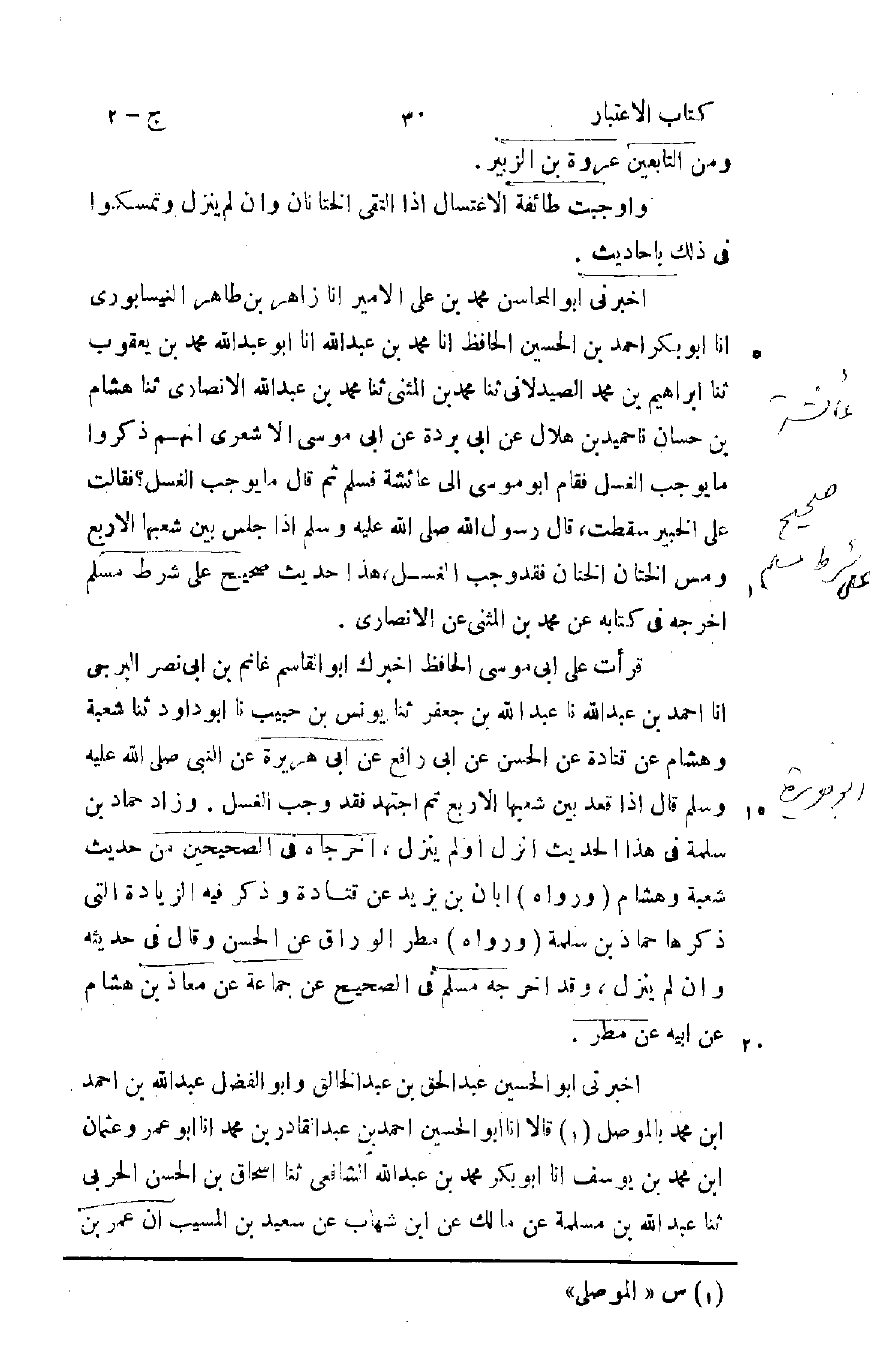 كتاب الاعتبار ٣٠ ج – ٢
ومن التابعين عروة بن الزبير .
واوجبت طائفة الاغتسال اذا التقى الختانان وان لم ينزل وتمسكوا
فى ذلك باحاديث .
اخبرنى ابو المحاسن محمد بن على الامير انا زاهر بن طاهر النيسابورى
انا ابو بكر احمد بن الحسين الحافظ انا محمد بن عبدالله انا ابو عبدالله محمد بن يعقوب
٥
ثنا ابراهيم بن محمد الصيدلانى ثنا محمد بن المثنى ثنا محمد بن عبدالله الانصارى ثنا هشام
عائشة
بن حسان نا حميد بن هلال عن ابى بردة عن ابى موسى الاشعرى انهم ذكروا
مايوجب الغسل فقام ابو موسى الى عائشة فسلم ثم قال مايوجب الغسل؟ فقالت
صحيح
على الخبير سقطت، قال رسول الله صلى الله عليه وسلم اذا جلس بين شعبها الاربع
على شرط مسلم
ومس الختان الختان فقد وجب الغسل، هذا حديث صحيح على شرط مسلم
اخرجه فى كتابه عن محمد بن المثنى عن الانصارى .
قرأت على ابى موسى الحافظ اخبرك ابو القاسم غانم بن ابى نصر البرجى
انا احمد بن عبدالله نا عبد الله بن جعفر ثنا يونس بن حبيب نا ابو داود ثنا شعبة
وهشام عن قتادة عن الحسن عن ابى رافع عن ابى هريرة عن النبى صلى الله عليه
ابو هريرة
وسلم قال اذا قعد بين شعبها الاربع ثم اجتهد فقد وجب الغسل . وزاد حماد بن
١٥
سلمة فى هذا الحديث انزل اولم ينزل ، اخرجاه فى الصحيحين من حديث
شعبة وهشام (ورواه) ابان بن يزيد عن قتادة وذكر فيه الزيادة التى
ذكرها حماد بن سلمة (ورواه) مطر الوراق عن الحسن وقال فى حديثه
وان لم ينزل ، وقد اخرجه مسلم فى الصحيح عن جماعة عن معاذ بن هشام
عن ابيه عن مطر .
٢٠
اخبرنى ابو الحسين عبدالحق بن عبدالخالق وابو الفضل عبدالله بن احمد
ابن محمد بالموصل (١) قالا انا ابو الحسين احمد بن عبدالقادر بن محمد انا ابو عمر وعثمان
ابن محمد بن يوسف انا ابو بكر محمد بن عبدالله الشافعى ثنا اسحاق بن الحسن الحربى
ثنا عبد الله بن مسلمة عن مالك عن ابن شهاب عن سعيد بن المسيب ان عمر بن
(١) س « الموصلى»